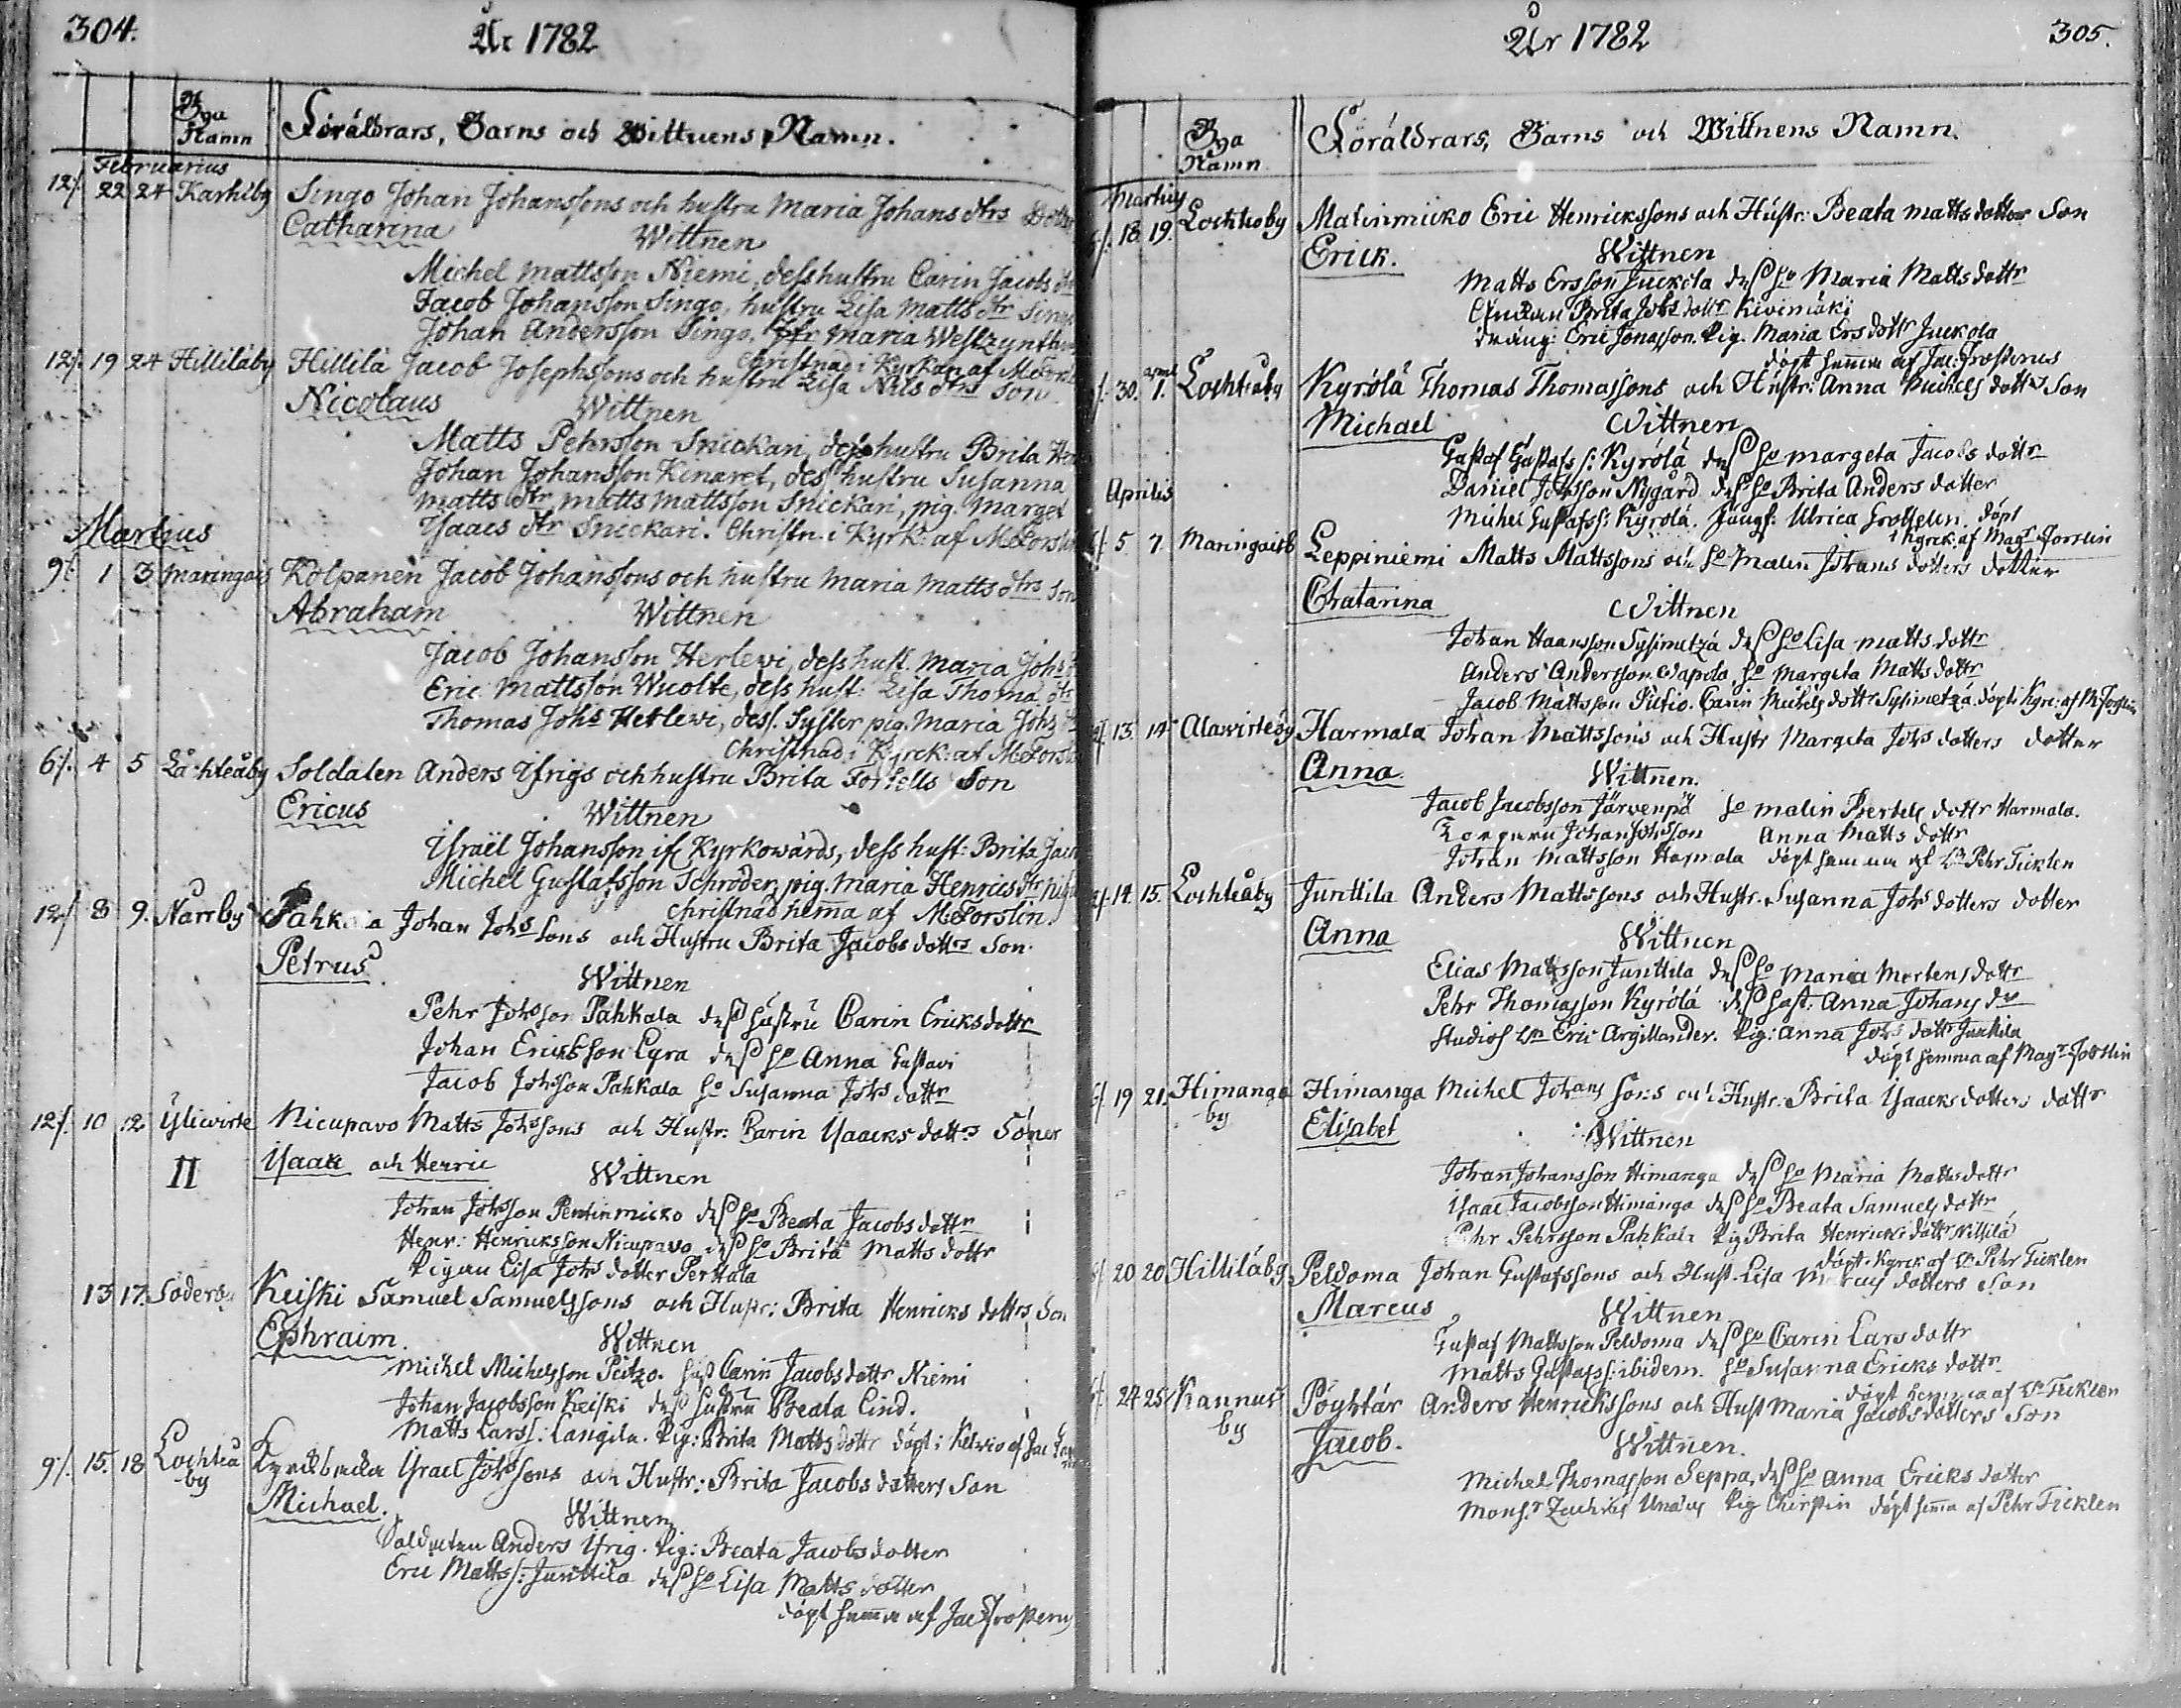 304.
År 1782
Bya Namn
Föräldrars, Barns och Wittnens Namn.
Februarius
12/. 22 24 Karhiby Singo Johan Johanssons och hustru Maria Johans dtrs Dotter
Catharina Wittnen
Michel Mattsson Niemi, dess hustru Carin Jacobs dtr
Jacob Johansson Singo, hustru Lisa Matts dtr Singo
Johan Andersson Singo. Jfr Maria Westzynthius
Christnad i Kyrkan af M. Forslin
12/. 19 24 Hilliläby Hillilä Jacob Josephssons och hustru Lisa Nils dtrs Son
Nicolaus Wittnen
Matts Pehrsson Snickari, dess hustru Brita
Johan Johansson Kenaret, dess hustru Susanna
Matts dtr Matts Mattsson Snickari, pig. Marget
Ysaacs dtr Snickari. Christn. i Kyrk: af M. Forslin
Martius
9/. 1 3 Maringais Kolpanen Jacob Johanssons och hustru Maria Matts dtrs Son
Abraham Wittnen
Jacob Johansson Herlevi, dess hust. Maria Johs
Eric Mattsson Wuolte, dess hust: Lisa Thoma dtr
Thomas Johs Herlevi, dess. Syster pig. Maria Johs
Christnad i Kyrck: af M. Forslin
6/. 4 5 Låchteåby Soldaten Anders Yfrigs och hustru Brita Forsells Son
Ericus Wittnen
Israël Johansson if Kyrkowärds, dess hust: Brita Jacobs
Michel Gustafsson Schroder, pig. Maria Henrics dtr
Christnad hema af M. Forslin.
12/ 8 9. Narrby Pahkala Johan Johs Sons och Hustru Brita Jacobs dottrs Son.
Petrus Wittnen
Pehr Johsson Pahkala dess hustru Carin Ericksdottr
Johan Ericksson Lyra dess ho Anna Gustavi
Jacob Johsson Pahkala ho Susanna Johs dottr
12/. 10 12 Yliwirte Nicupavo Matts Johssons och Hustr: Carin Ysaacks dottrs Söner
II Ysaac och Henric Wittnen
Johan Johsson Pentinmicko dess ho Beata Jacobs dottr
Henr: Henricksson Nicupavo dess ho Brita Matts dottr
Pigan Lisa Johs dotter Pertala
13 17. Söderby Keiski Samuel Samuelssons och Hustr: Brita Henricks dottrs Son
Ephraim. Wittnen
Michel Michelsson Peitzo. hust Carin Jacobsdottr Niemi
Johan Jacobsson Keiski dess hustru Beata Lind.
Matts Larss: Langila. Pig: Brita Matts dottr döpt i Kelvio af Jac
9/. 15. 18 Lochteå by Kyrckbacka Ysrael Johssons och Hustr: Brita Jacobs dotters Son
Michael. Wittnen
Soldaten Anders Yfrig. Pig: Beata Jacobs dotter
Eric Matts: Junttila dess ho Lisa Matts dotter
döpt hema af Jac Frosterus
305.
År 1782
Bya Namn
Föräldrars, Barns och Wittnens Namn.
Martius
18. 19. Lochteby Malinmicko Eric Henrickssons och Hustr: Beata Matts dotter Son
Erick. Wittnen
Matts Ersson Juckola dess ho Maria Matts dottr
Enckan Brita Johs dottr Kivimäki
dräng: Eric Jonasson. Pig. Maria Ers dottr Juckola
döpt hema af Jac: Frosterus
30. april 1. Lochteåby Kyrölä Thomas Thomassons och Hustr: Anna Michels dottrs Son
Michael Wittnen
Gustaf Gustafs s: Kyrölä dess ho Margeta Jacobs dottr
Aprilis
Daniel Johsson Nygård dess ho Brita Anders dotter
Michel Gustafss: Kyrölä. Jungf: Ulrica döpt
i Kyrck: af Mag Forslin
5 7. Maringaisb Leppiniemi Matts Mattssons och ho Malin Johans dotters dotter
Chatarina Wittnen
Johan Haansson Sysimetzä dess ho Lisa Matts dottr
Anders Andersson Wapola, ho Margeta Matts dottr
Jacob Mattsson Putio. Carin Michels dottr Sysimetzä döpt i Kyrc: af M. Forslin
13. 14 Alawirteby Harmala Johan Mattssons och Hustr Margeta Johs dotters dotter
Anna. Wittnen.
Jacob Jacobsson Järwenpä ho Malin Bertils dottr Harmala.
Johan Johsson Anna Matts dottr
Johan Mattsson Harmala döpt hemma af Hr Pehr Ticklen
14. 15. Lochteåby Junttila Anders Mattssons och Hustr. Susanna Johs dotters dotter
Anna Wittnen
Elias Mattsson Junttila dess ho Maria Mortens dottr
Pehr Thomasson Kyrölä dess hust: Anna Johans dr
Studios Hr Eric Argillander. Pig: Anna Johs dottr Junttila
döpt hemma af Magr Forslin
19 21. Himanga by Himanga Michel Johans Sons och Hustr. Brita Ysaacks dotters dottr
Elisabet Wittnen
Johan Johansson Himanga dess ho Maria Matts dottr
Ysaac Jacobsson Himanga dess ho Beata Samuels dottr
Pehr Pehrsson Pahkala Pig Brita Henricks dottr Hillilä
döpt. Kyrck af Hr Pehr Ticklen
20 20 Hilliläby Peldoma Johan Gustafssons och Hust. Lisa dotters Son
Marcus Wittnen
Gustaf Mattsson Peldoma dess ho Carin Lars dottr
Matts Gustafss: ibidem. ho Susanna Ericks dottr.
döpt hemma af Hr Ticklen
24 25 Kannus by Pöyhtär Anders Henrickssons och Hust Maria Jacobs dotters Son
Jacob. Wittnen.
Michel Thomasson Seppa, dess ho Anna Ericks dotter
Monsr Zachris Pig Christin döpt hema af Pehr Ticklen